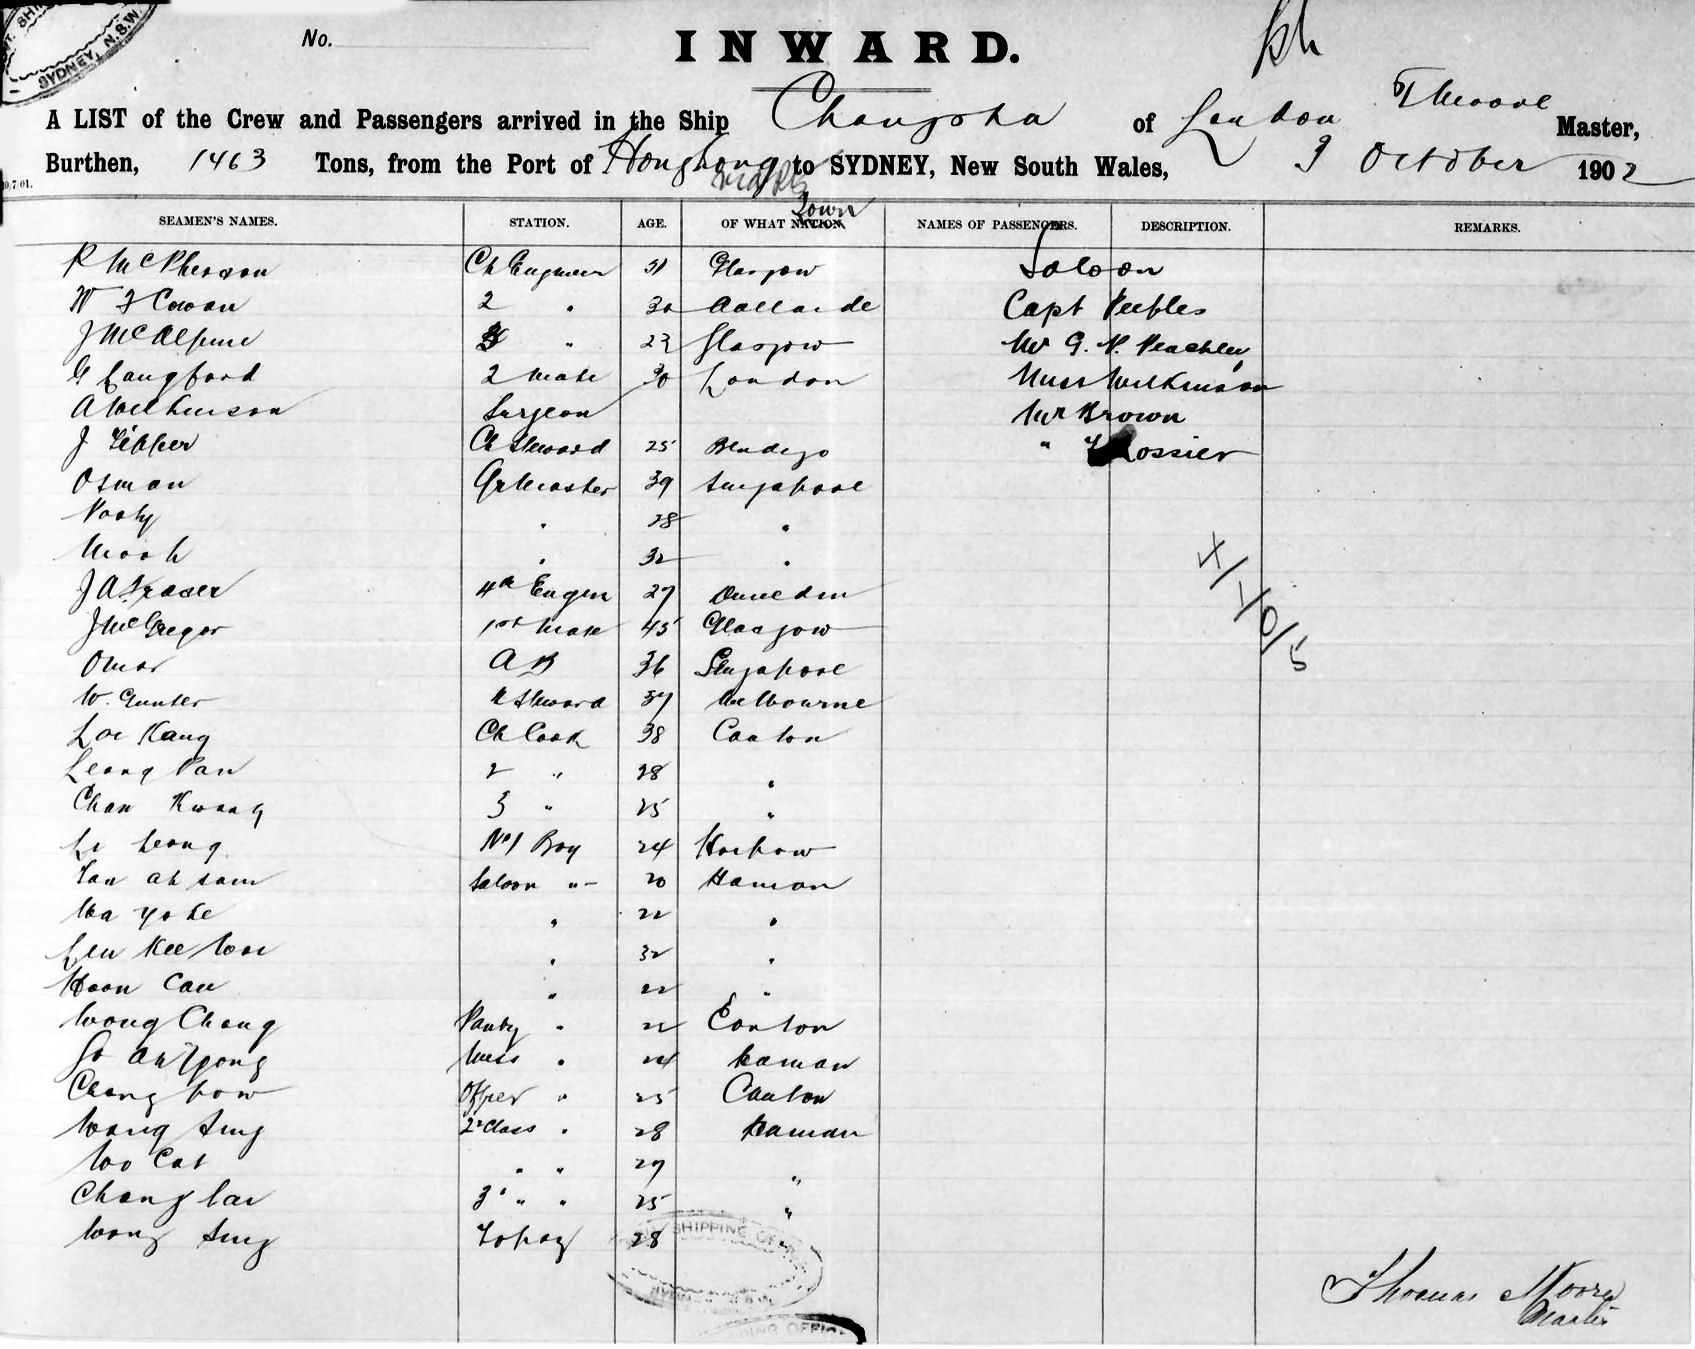 No.
INWARD.
A LIST of the Crew and Passengers arrived in the Ship Changsha of London T Moore Master,
Burthen, 1463 Tons, from the Port of Hongkong to SYDNEY, New South Wales, 3 October 1902
SEAMEN'S NAMES. STATION. AGE. OF WHAT NATION. Town NAMES OF PASSENGERS. DESCRIPTION. REMARKS.
R McPherson Ch Engineer 51 Glasgow Saloon
W F Cowan 2 " 30 Capt Peebles
J McAlpine " 23 Glasgow Mr G. P. Peachley
G Langford 2 Mate 30 London Miss Wilkinson
A Wilkinson Surgeon Mr Brown
J Tibber Ch Steward 25 Bendigo " Rossier
Osman Qr Master 39 Singapore
" 28 "
" 32 "
J A Fraser 4th Engin 27 Dunedin
J McGregor 1st Mate 45 Glasgow
Omar AB 36 Singapore
W. Gunter Steward 37 Melbourne
Loe Kang Ch Cook 38 Canton
Leong Pan 2 " 28 "
Chan Kwong 3 " 25 "
Li Leong No 1 Boy 24
Tan Ah Sam Saloon " 20 Hainan
Wa Yoke " 22 "
Lim Kee Woi " 32 "
Hoon Cau " 22 "
Wong Chong Pantry " 22 Canton
Go Ah Yyong Mess " 24 Hainan
Chong Pow Officer " 25 Canton
Wong Sing 2nd Class " 28 Hainan
Wo Cat " " 27 "
Chong Lai 3rd " " 25 "
Wong Sing Topaz 28 "
4/10/5
Thomas Moore
Master
SYDNEY, N.S.W.
SHIPPING OFFICE
SYDNEY N.S.W.
SHIPPING OFFICE